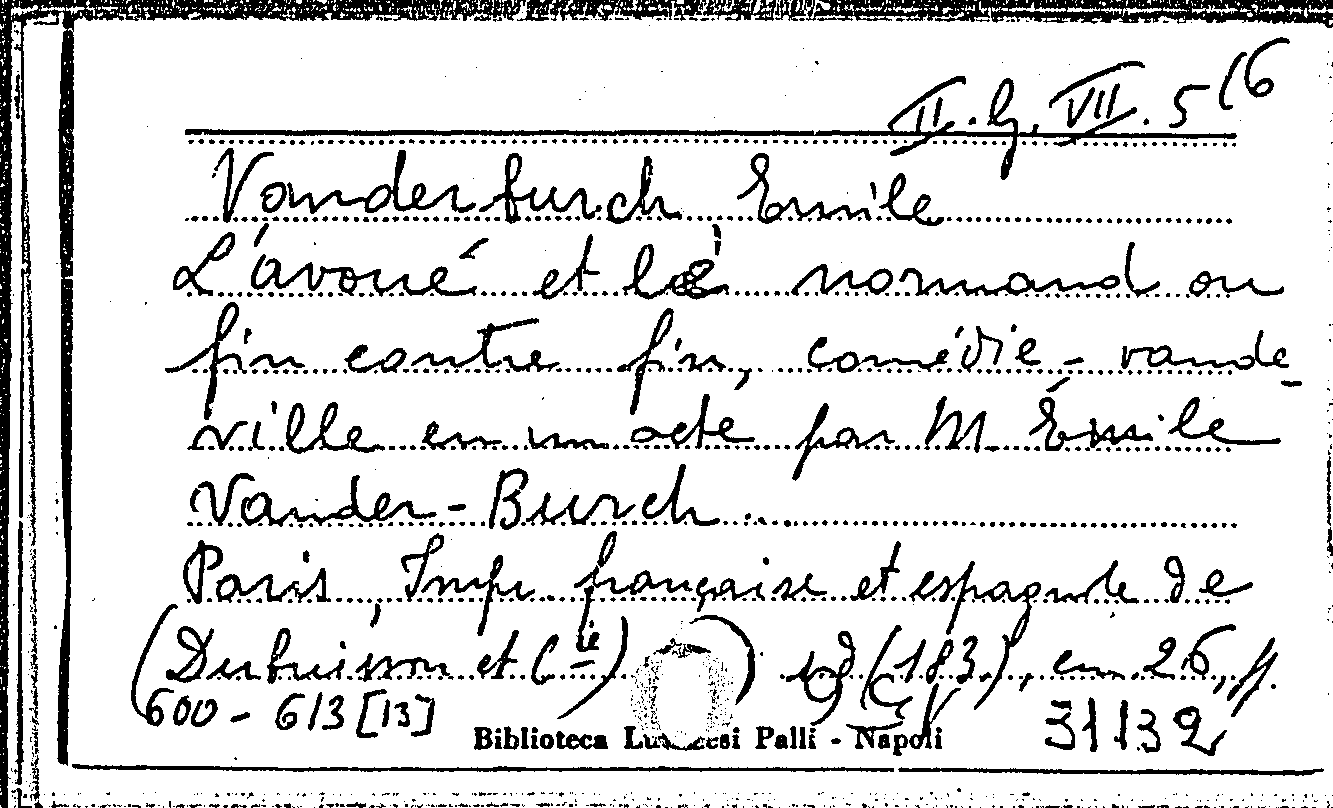 II. G. VII. 5 (6
Vanderburch Emile
L'avoué et le normand ou
fin contre fin, comédie-vaude-
ville en un acte par M. Émile
Vander-Burch...
Paris, Imp. française et espagnole de
(Dubuisson et Cie) (183), cm. 26, pp.
600 - 613 [13]
Biblioteca Lucchesi Palli - Napoli
31132